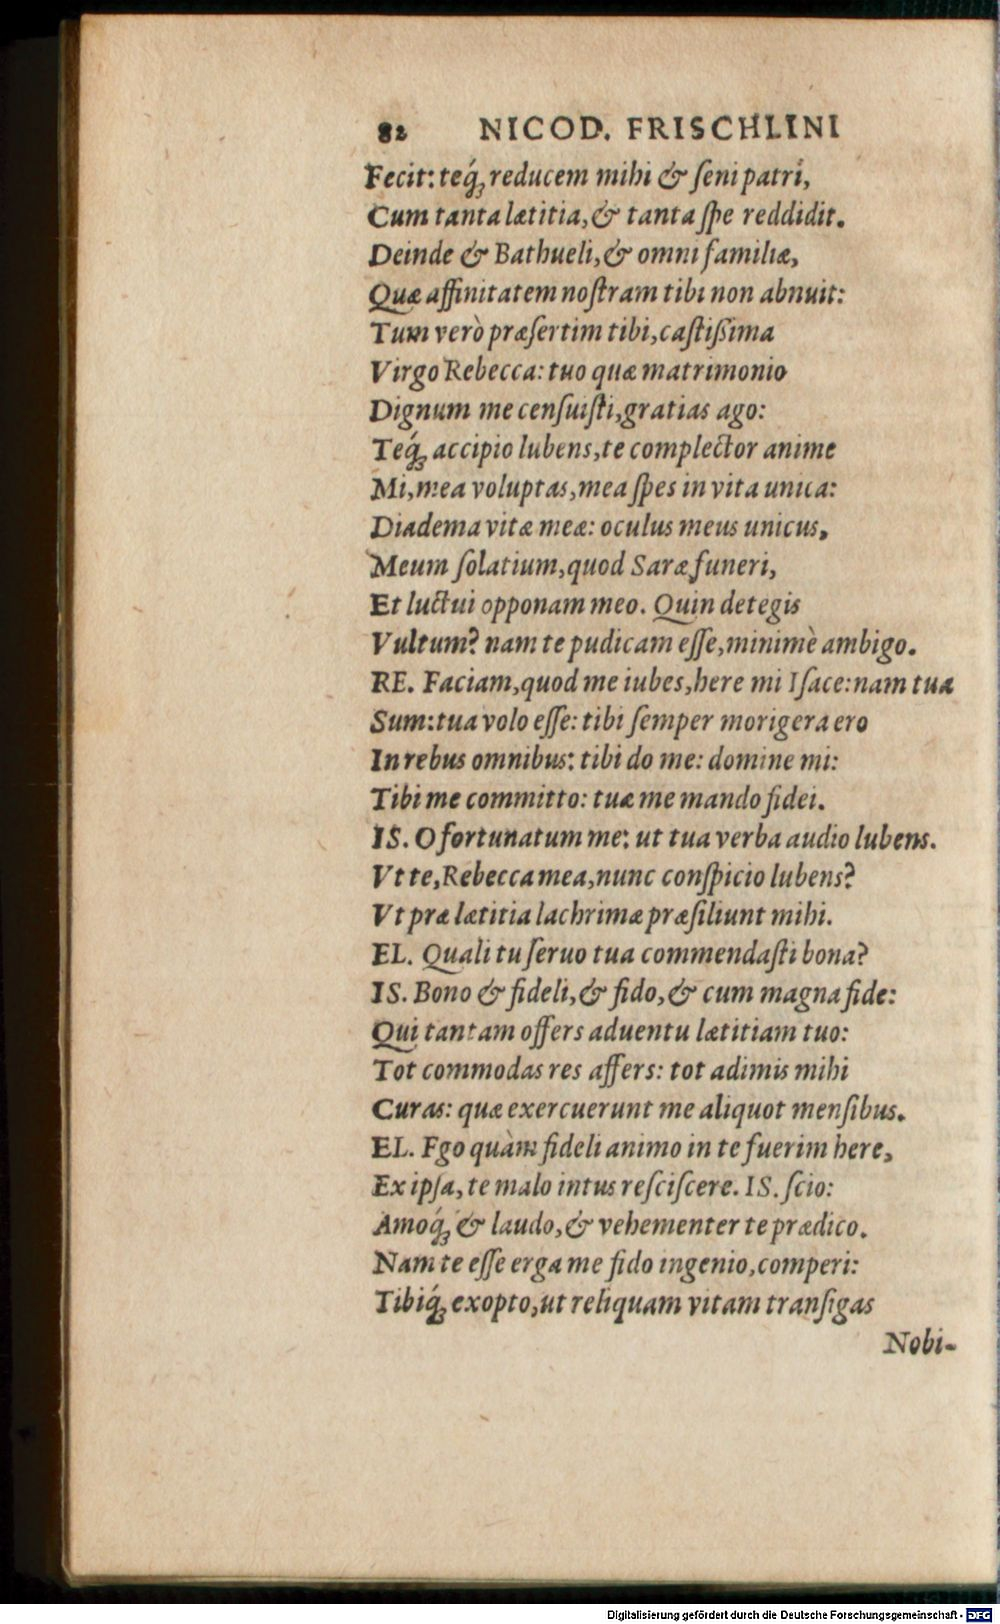 82 NICOD. FRISCHLINI
Fecit: teq́; reducem mihi & ſeni patri,
Cum tanta lætitia, & tanta ſpe reddidit.
Deinde & Bathueli, & omni familiæ,
Quæ affinitatem noſtram tibi non abnuit:
Tum verò præſertim tibi, caſtiſsima
Virgo Rebecca: tuo quæ matrimonio
Dignum me cenſuiſti, gratias ago:
Teq́; accipio lubens, te complector anime
Mi, mea voluptas, mea ſpes in vita unica:
Diadema vitæ meæ: oculus meus unicus,
Meum ſolatium, quod Saræ funeri,
Et luctui opponam meo. Quin detegis
Vultum? nam te pudicam eſſe, minimè ambigo.
RE. Faciam, quod me iubes, here mi Iſace: nam tua
Sum: tua volo eſſe: tibi ſemper morigera ero
In rebus omnibus: tibi do me: domine mi:
Tibi me committo: tuæ me mando fidei.
IS. O fortunatum me: ut tua verba audio lubens.
Vt te, Rebecca mea, nunc conſpicio lubens?
Vt præ lætitia lachrimæ præſiliunt mihi.
EL. Quali tu ſeruo tua commendaſti bona?
IS. Bono & fideli, & fido, & cum magna fide:
Qui tantam offers aduentu lætitiam tuo:
Tot commodas res affers: tot adimis mihi
Curas: quæ exercuerunt me aliquot menſibus.
EL. Fgo quàm fideli animo in te fuerim here,
Ex ipſa, te malo intus reſciſcere. IS. ſcio:
Amoq́; & laudo, & vehementer te prædico.
Nam te eſſe erga me fido ingenio, comperi:
Tibiq́; exopto, ut reliquam vitam tranſigas
Nobi-
Digitalisierung gefördert durch die Deutsche Forschungsgemeinschaft - DFG